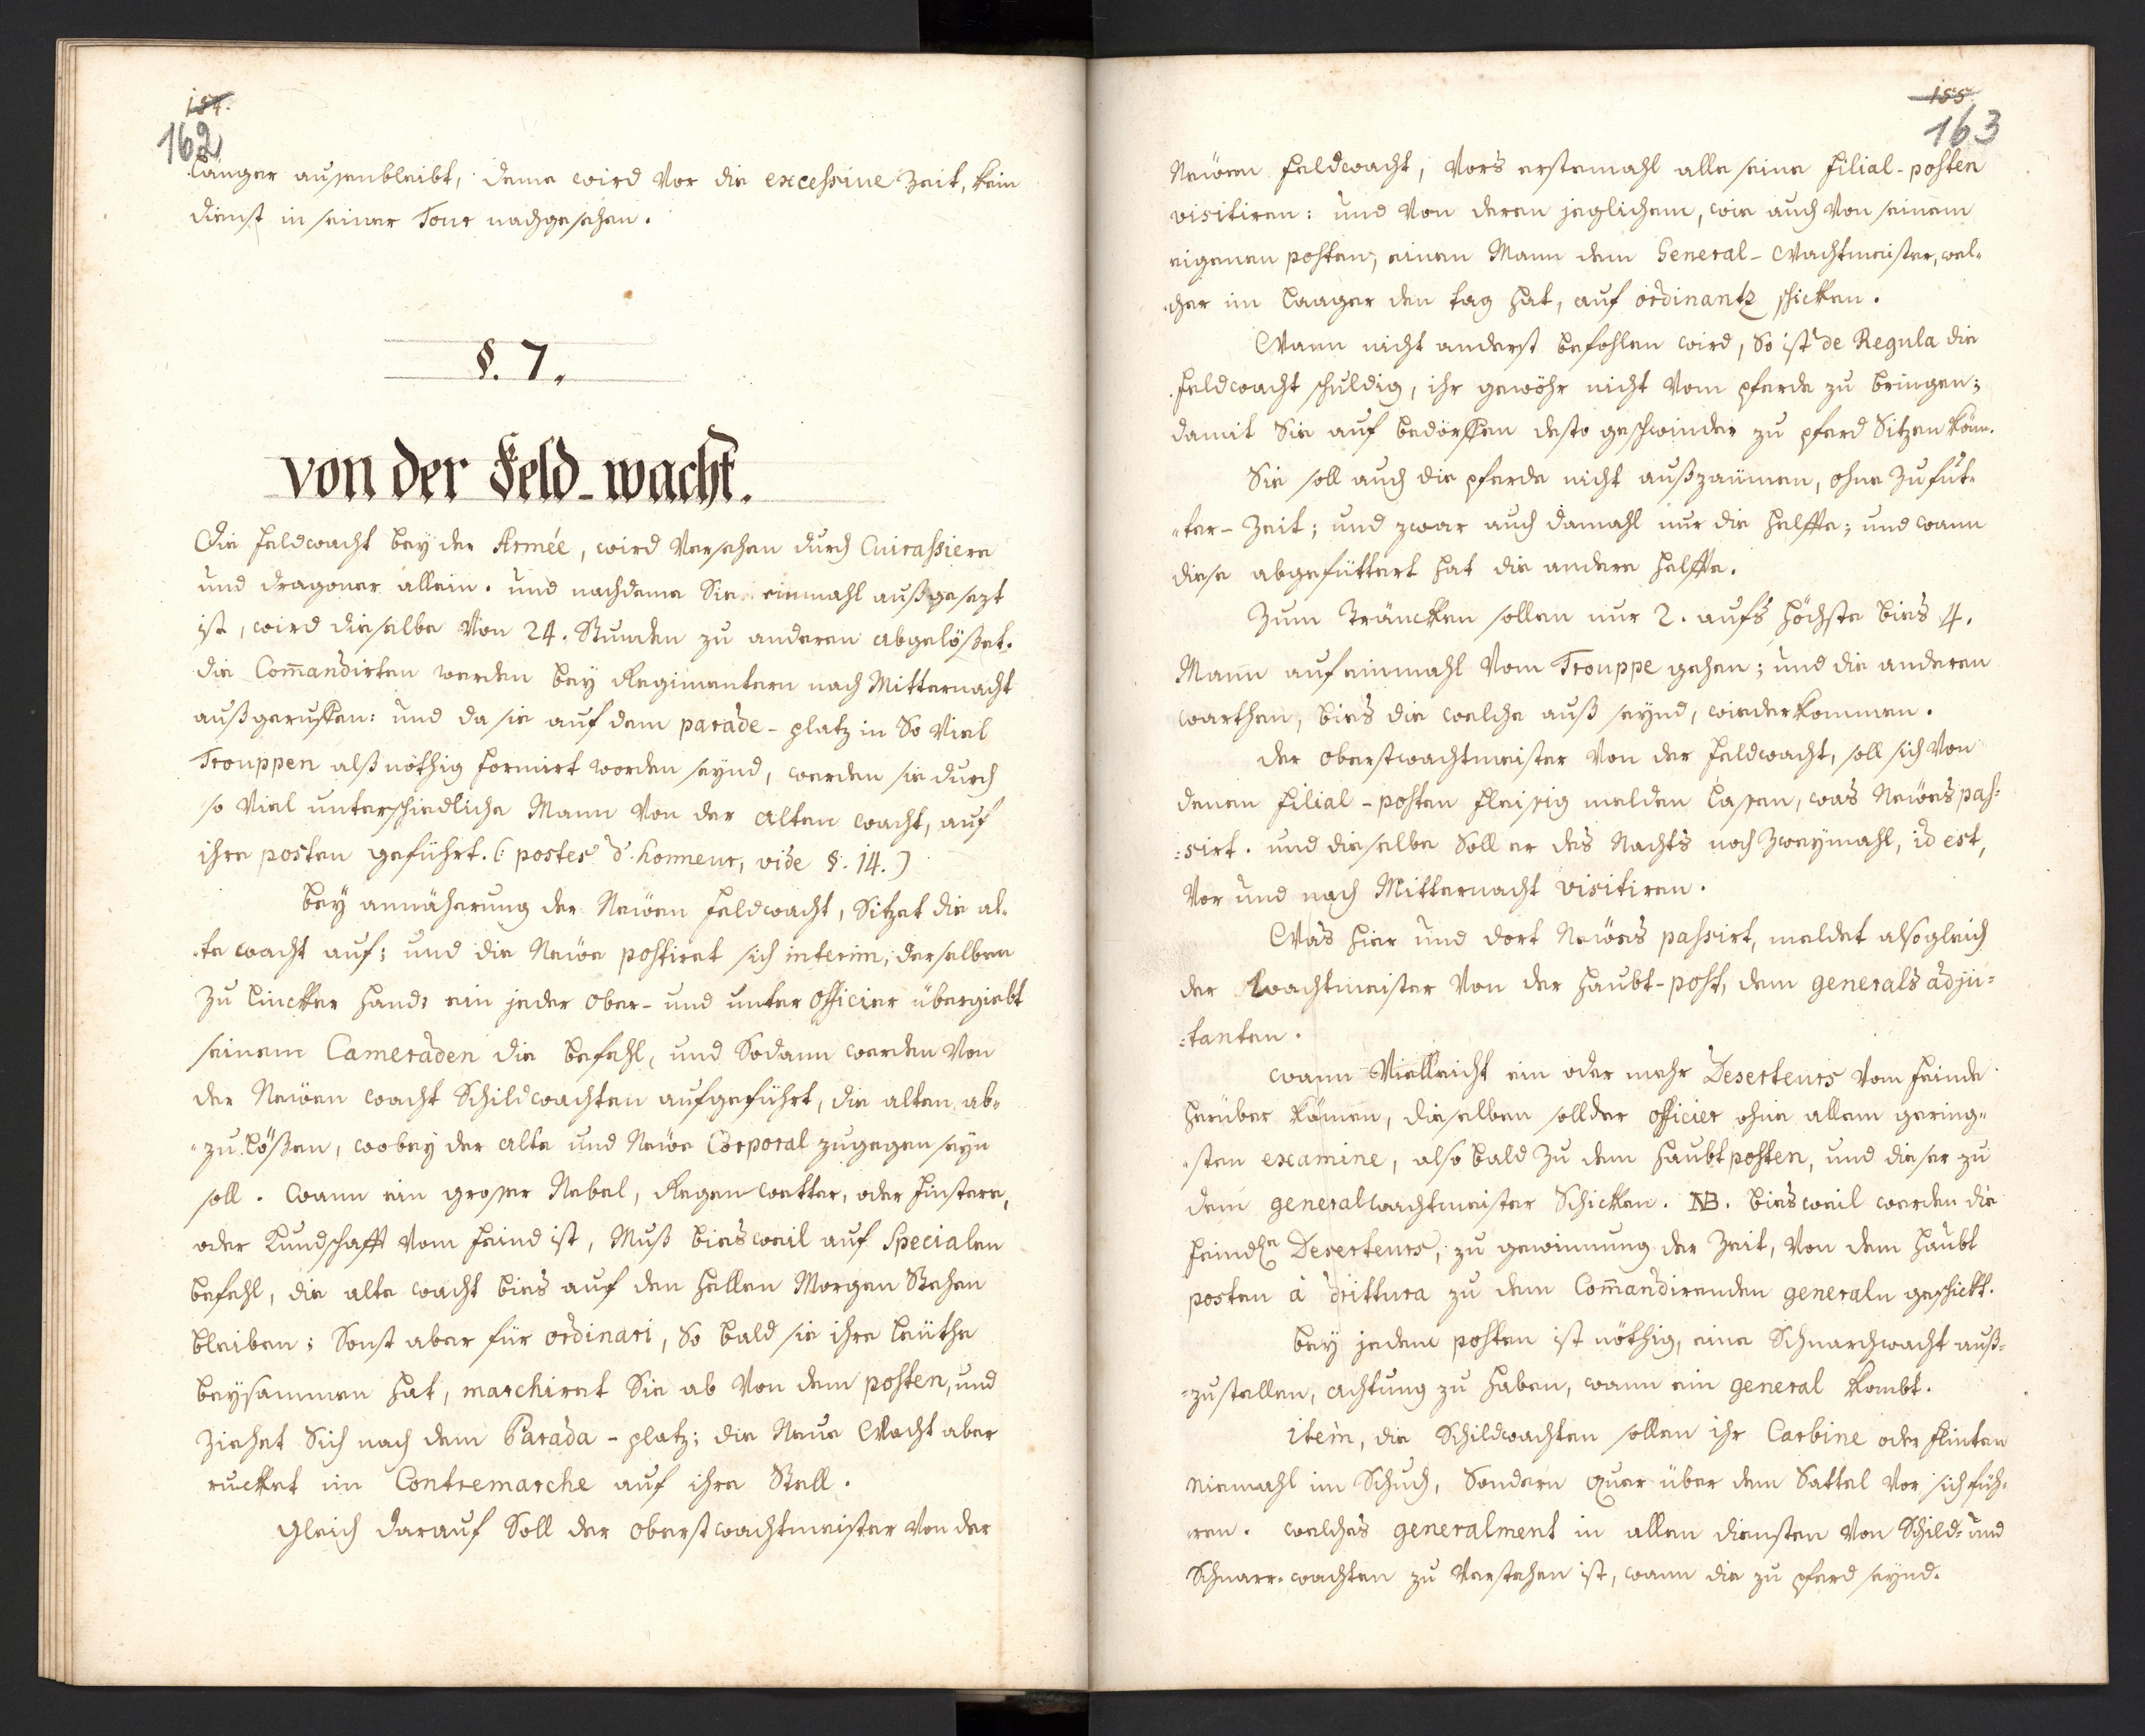 154.
162
länger ausenbleibt, deme wird vor die excessive Zeit, kein
dienst in seiner Tour nachgesehen.
§. 7.
von der Feld-wacht.
Die feldwacht bey der Armée, wird versehen durch Cuirassiere
und dragoner allein. und nachdeme Sie einmahl außgesezt
ist, wird dieselbe von 24. Stunden zu anderen abgelößet.
die Com̄andirten werden bey Regimentern nach Mitternacht
außgeruffen: und da sie auf dem parade-platz in So viel
Trouppen alß nöthig formirt worden seynd, werden sie durch
so viel unterschiedliche Mann von der alten wacht, auf
ihre posten geführt. (: postes d'honneur, vide §. 14.)
bey annäherung der Neüen feldwacht, Sitzet die al-
-te wacht auf; und die Neüe postiret sich interim, derselben
zu lincker hand; ein jeder ober- und unter officier übergiebt
seinem Cameraden die befehl, und Sodann werden von
der Neüen wacht Schildwachten aufgeführt, die alten ab-
-zulößen, wobey der alte und Neüe Corporal zugegen seyn
soll. wann ein groser Nebel, Regenwetter, oder finstere,
oder Kundschafft vom feind ist, Muß biesweil auf Specialen
befehl, die alte wacht bies auf den hellen Morgen Stehen
bleiben; Sonst aber für ordinari, So bald sie ihre leüthe
beysammen hat, marchiret Sie ab von dem posten, und
ziehet Sich nach dem Parada-platz; die Neue Wacht aber
rucket im Contremarche auf ihre Stell.
gleich darauf Soll der oberstwachtmeister von der
155.
163
Neüen feldwacht, vors erstemahl alle seine filial-posten
visitiren: und von deren jeglichem, wie auch von seinem
eigenen posten, einen Mann dem General-Wachtmeister, wel-
-cher im laager den tag hat, auf ordinantz schicken.
Wann nicht anderst befohlen wird, So ist de Regula die
feldwacht schuldig, ihr gewöhr nicht vom pferde zu bringen;
damit Sie auf bedörffen desto geschwinder zu pferd Sitzen kön̄.
Sie soll auch die pferde nicht außzaümen, ohne zu fut-
-ter-Zeit; und zwar auch damahl nur die helffte; und wann
diese abgefüttert hat die andere helffte.
Zum träncken sollen nur 2. aufs höchste bies 4.
Mann auf einmahl vom Trouppe gehen; und die anderen
warthen, bies die welche auß seynd, wiederkommen.
der oberstwachtmeister von der feldwacht, soll sich von
denen filial-posten fleisig melden lasen, was Neües pas-
:sirt. und dieselbe Soll er des Nachts noch zweymahl, id est,
vor und nach Mitternacht visitiren.
Was hier und dort Neües passirt, meldet alsogleich
der wachtmeister von der haubt-post, dem generals adju-
:tanten.
wann vielleicht ein oder mehr Deserteurs vom feinde
herüber kämen, dieselben soll der officier ohne allem gering-
-sten examine, also bald zu dem haubtposten, und dieser zu
dem generalwachtmeister Schicken. NB. biesweil werden die
feindln Deserteurs, zu gewinnung der Zeit, von dem haubt
posten à drittura zu dem Com̄andirenden generaln geschickt.
bey jedem posten ist nöthig, eine Schnarchwacht auß-
-zustellen, achtung zu haben, wann ein general kombt.
item, die Schildwachten sollen ihr Carbine oder flinten
niemahl im Schuch, Sondern quer über dem Sattel vor sich füh-
-ren. welches generalment in allen diensten von Schild- und
Schnarr-wachten zu verstehen ist, wann die zu pferd seynd.